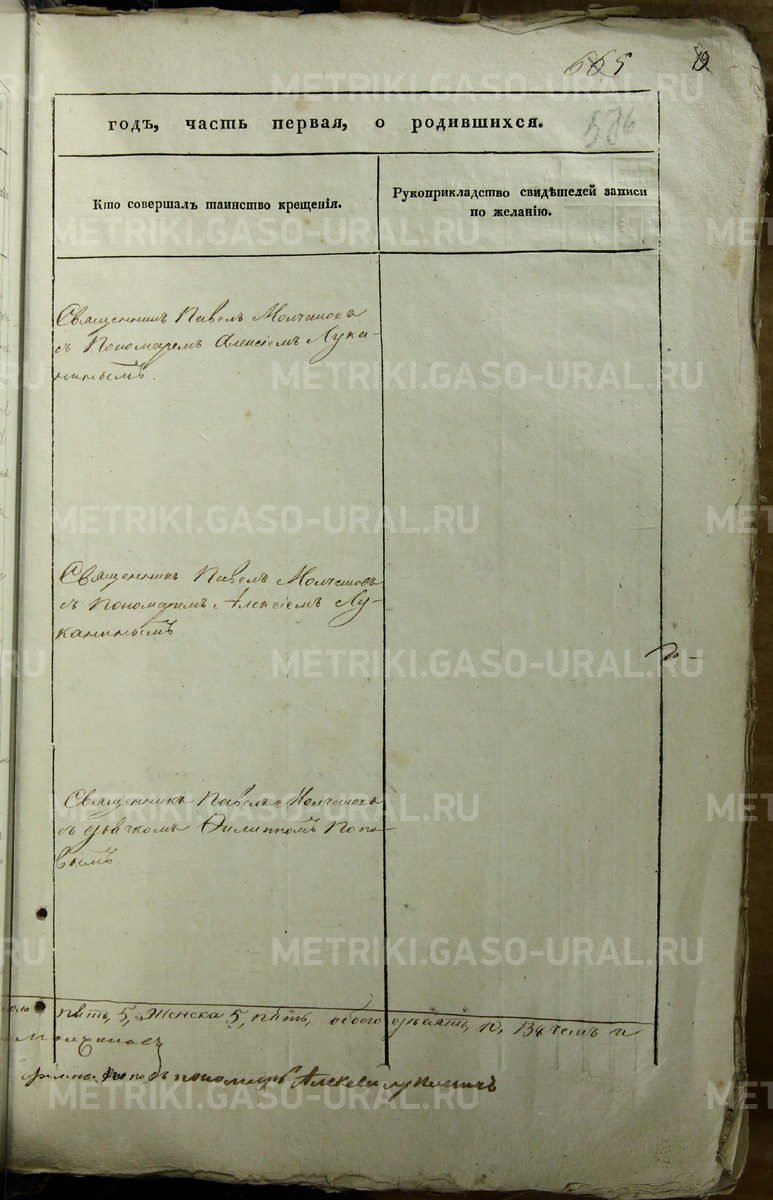 665 19
годъ, часть первая, о родившихся.
576
Кто совершалъ таинство крещенія.
Рукоприкладство свидѣтелей записи
по желанію.
Священникъ Павелъ Молчановъ
съ Пономаремъ Алексіемъ Лука-
нинымъ.
Священникъ Павелъ Молчановъ
съ Пономаремъ Алексіемъ Лу-
канинымъ.
до
Священникъ Павелъ Молчановъ
съ дьячкомъ Филиппомъ Попо-
вымъ
пять, 5, Женска 5, пять, обоего десять, 10, въ чемъ и
Молчановъ
Поповъ пономарь Алексей Луканинъ
METRIKI.GASO-URAL.RU